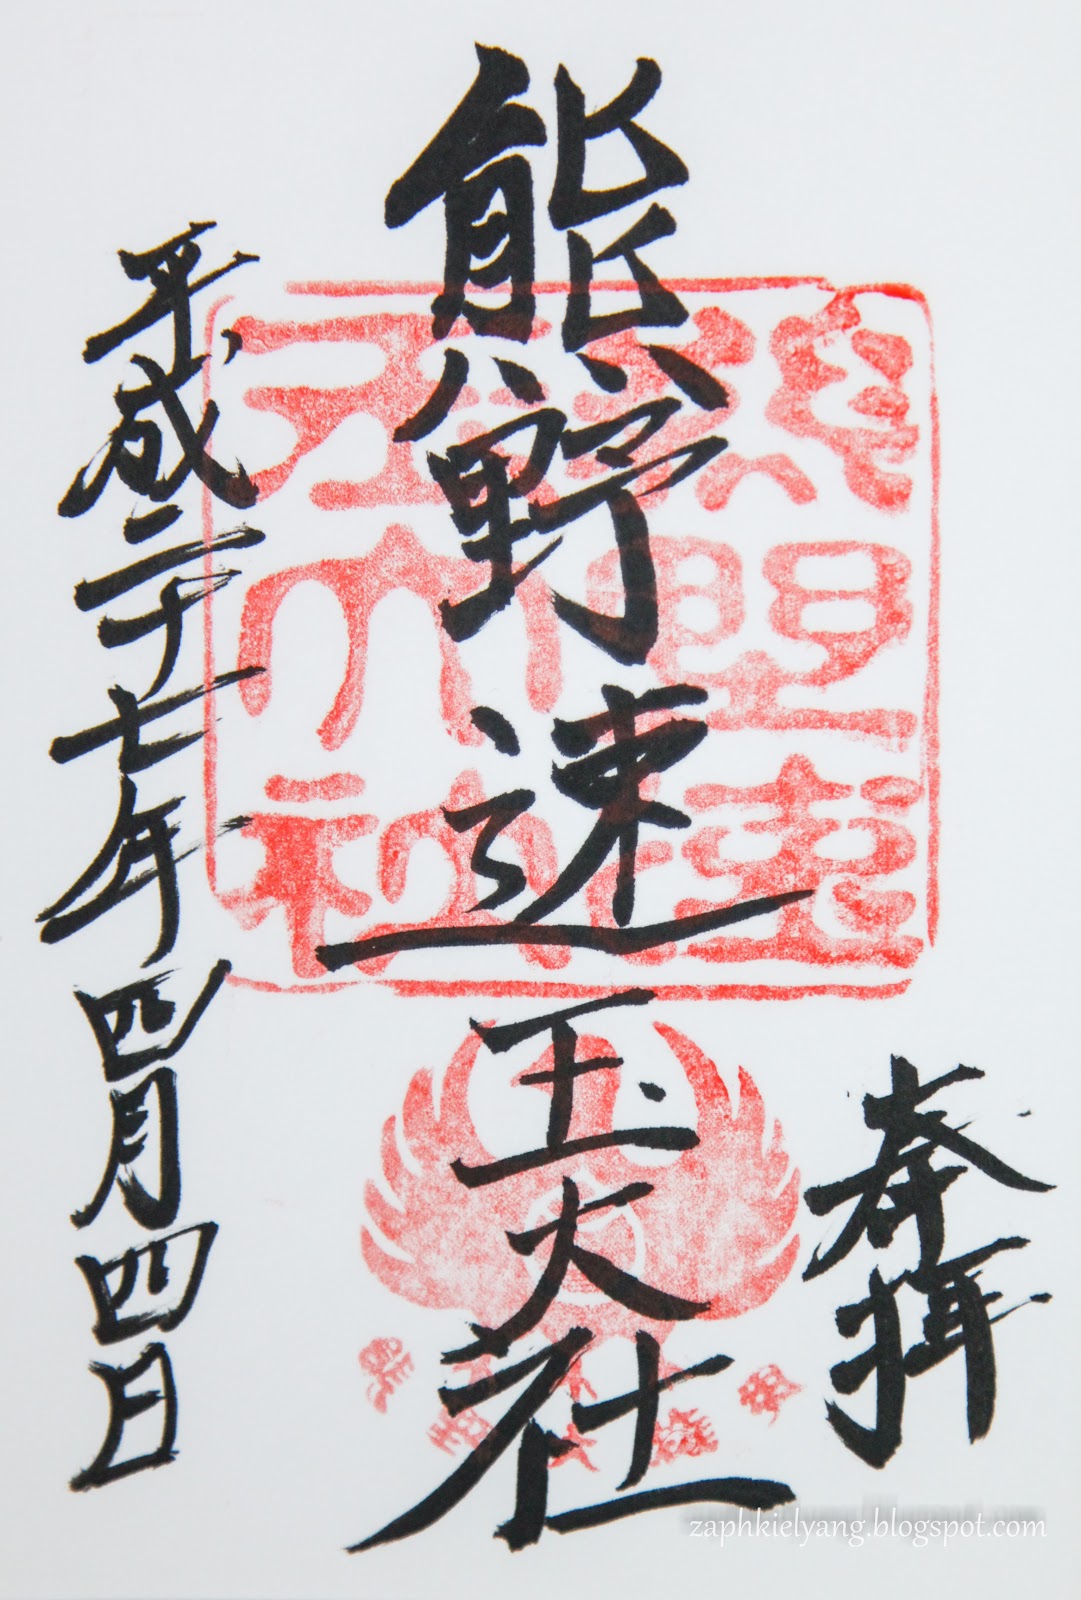 奉拝
熊野速玉大社
平成二十七年四月四日
熊野速
玉大社
zaphkielyang.blogspot.com